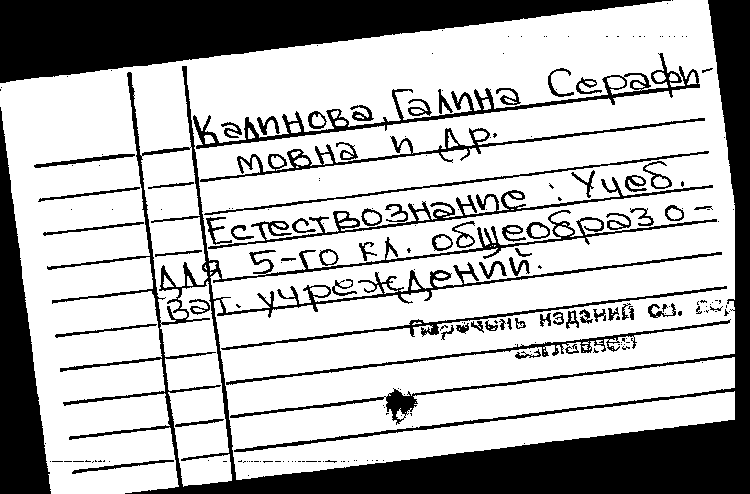 Калинова, Галина Серафи-
мовна и др.
Естествознание : Учеб.
для 5-го кл. общеобразо-
ват. учреждений.
Перечень изданий см. пер
заглавное